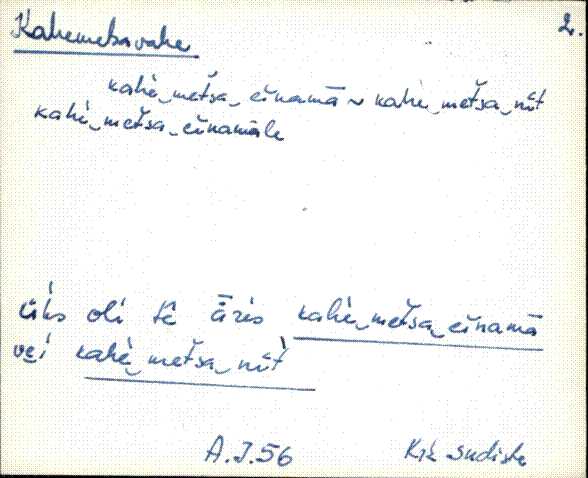 Kahemetsavahe 2.
kahè‿metša‿eīnamā ~ kahè‿metša‿nīt
kahè‿metša‿eīnamāle
üks oli tē āres kahè‿metša‿eīnamā
vei kahè‿metša‿nīt
A.J.56 Krk Sudiste